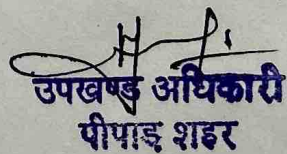 उपखण्ड अधिकारी
पीपाड़ शहर